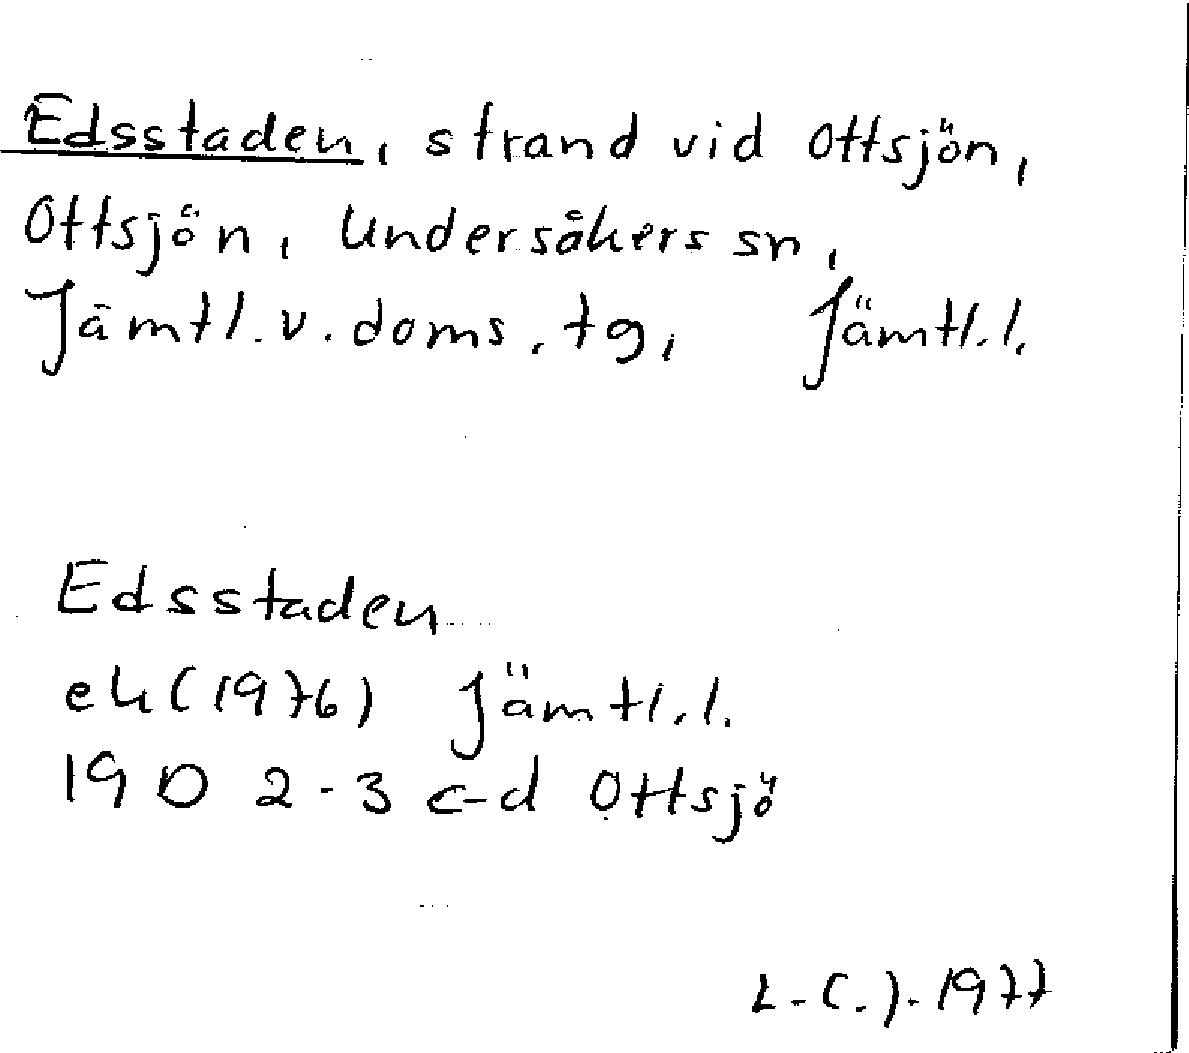 Edsstaden, strand vid Ottsjön,
Ottsjön, Undersåkers sn,
Jämtl. v. doms. tg, Jämtl. l.
Edsstaden
ek (1976) Jämtl. l.
19 D 2-3 c-d Ottsjö
L.C.J. 1977